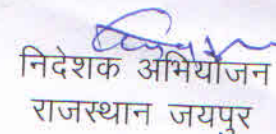 निदेशक अभियोजन
राजस्थान जयपुर